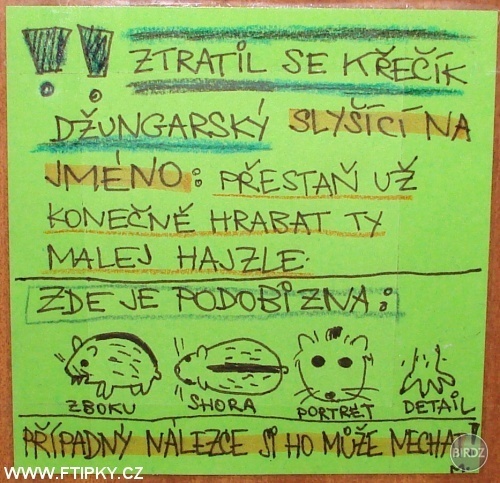 !! ZTRATIL SE KŘEČÍK
DŽUNGARSKÝ SLYŠÍCÍ NA
JMÉNO: PŘESTAŇ UŽ
KONEČNĚ HRABAT TY
MALEJ HAJZLE.
ZDE JE PODOBIZNA:
ZBOKU SHORA PORTRÉT DETAIL
PŘÍPADNÝ NÁLEZCE SI HO MŮŽE NECHAT!
M.
BIRDZ
WWW.FTIPKY.CZ